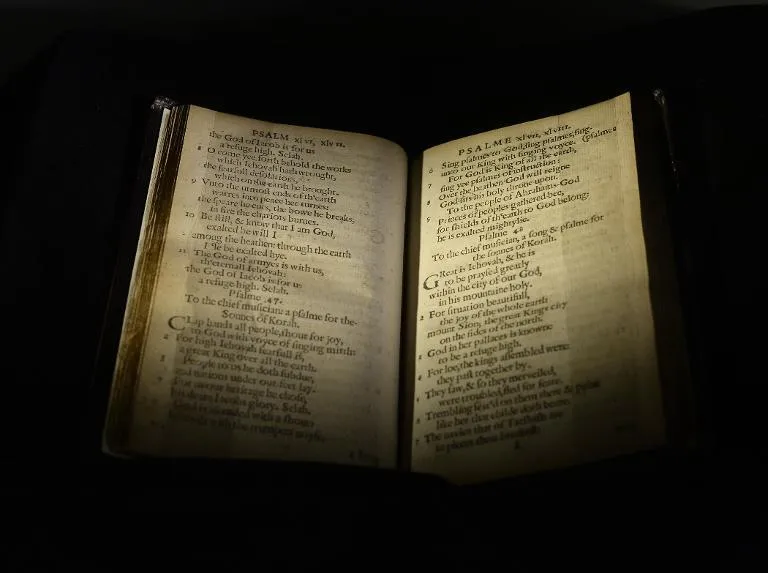 PSALM xlvi, xlvii.
the God of Iacob is for us
a refuge high. Selah.
8 O come yee forth behold the works
which Iehovah hath wrought,
the fearfull desolations,
which on the earth he brought.
9 Vnto the utmost ends of th'earth
warres into peace hee turnes:
the speare he cuts, the bowe he breaks,
in fire the chariots burnes.
10 Be still, & know that I am God,
exalted be will I
among the heathen: through the earth
I'le be exalted hye.
11 The God of armyes is with us,
th'eternall Iehovah:
the God of Iacob is for us
a refuge high. Selah.
Psalme 47.
To the chief musician: a psalme for the
Sonnes of Korah.
CLap hands all people, shout for joy,
to God with voyce of singing mirth
2 For high Iehovah fearfull is,
a great King over all the earth.
3 People to us he doth subdue,
and nations under our feet lay.
4 For us our heritage he chose,
his deare Iacobs glory. Selah.
God is ascended with a shout
PSALME xlvii, xlviii.
6 Sing psalmes to God, sing psalmes, sing
(psalmes
unto our King with singing voyce.
7 For God is King of all the earth,
sing yee psalmes of instruction:
8 Over the heathen God will reigne
God sits his holy throne upon.
To the people of Abrahams God
9 princes of peoples gathered bee,
for shields of th'earth to God belong:
he is exalted mightylie.
Psalme 48
To the chief musician, a song & psalme for
the sonnes of Korah.
GReat is Iehovah, & he is
to be praysed greatly
within the city of our God,
in his mountaine holy.
2 For situation beautifull,
the joy of the whole earth
mount Sion; the great Kings city
on the sides of the north.
3 God in her pallaces is knowne
to be a refuge high.
4 For loe, the kings assembled were:
they past together by.
5 They saw, & so they merveiled,
were troubled, fled for feare.
6 Trembling seiz'd on them there & paine
like her that childe doth beare.
7 The navies that of Tarshish are
in pieces thou